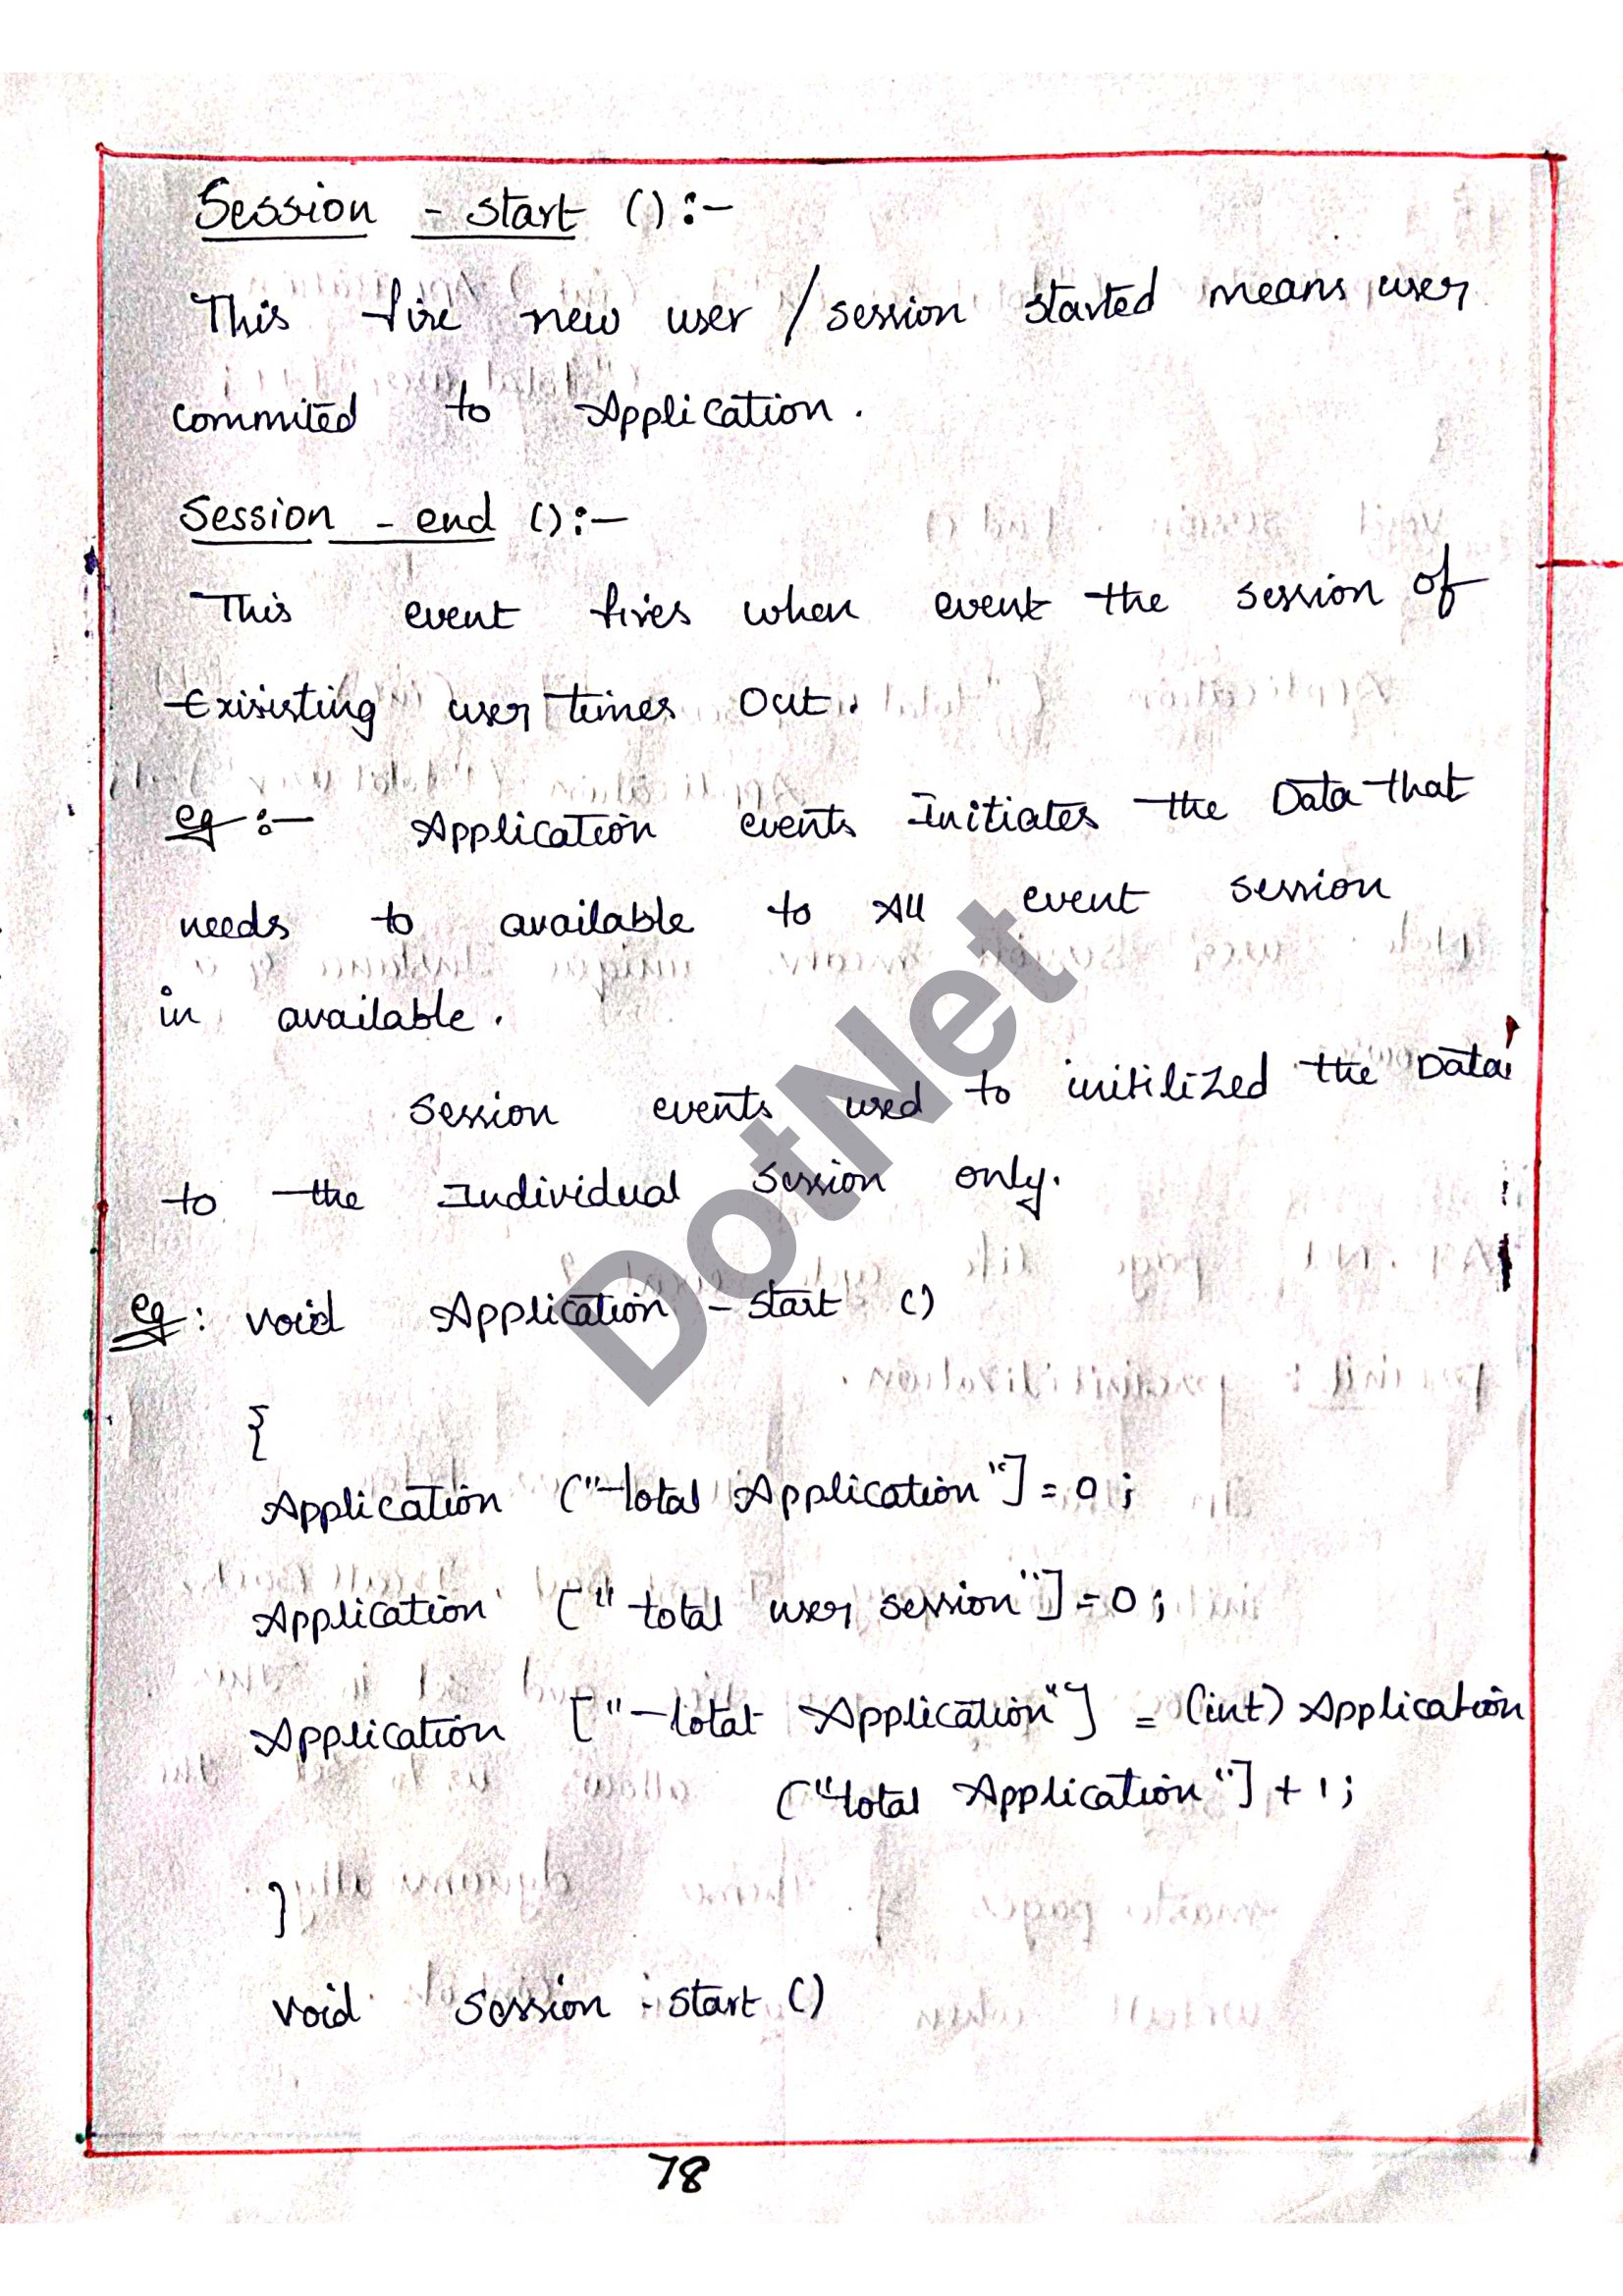 Session - start () :-
This fire new user / session started means user
commited to Application.
Session - end () :-
This event fires when event the session of
Exisisting user times out.
eg :- Application events Initiates the Data that
needs to available to All event session
in available.
Session events used to initilized the Data
to the Individual Session only.
eg : void Application - start ()
{
Application ("total Application"] = 0 ;
Application [" total user session"] = 0 ;
Application ["total Application"] = (int) Application
("total Application"] + 1 ;
}
void Session - start ()
78
DotNet